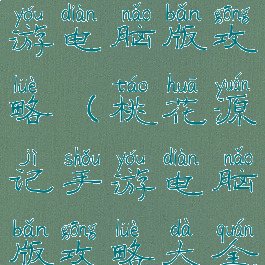 yóu diàn nǎo bǎn gōng
游电脑版攻
lüè táo huā yuán
略(桃花源
jì shǒu yóu diàn nǎo
记手游电脑
bǎn gōng lüè dà quán
版攻略大全